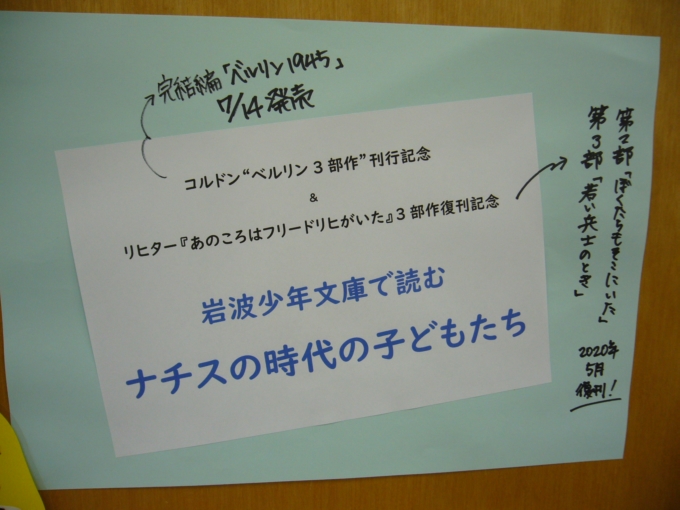 完結編「ベルリン1945」
7/14発売
コルドン“ベルリン3部作”刊行記念
&
リヒター『あのころはフリードリヒがいた』3部作復刊記念
岩波少年文庫で読む
ナチスの時代の子どもたち
第2部「ぼくたちもそこにいた」
第3部「若い兵士のとき」
2020年
5月
復刊!